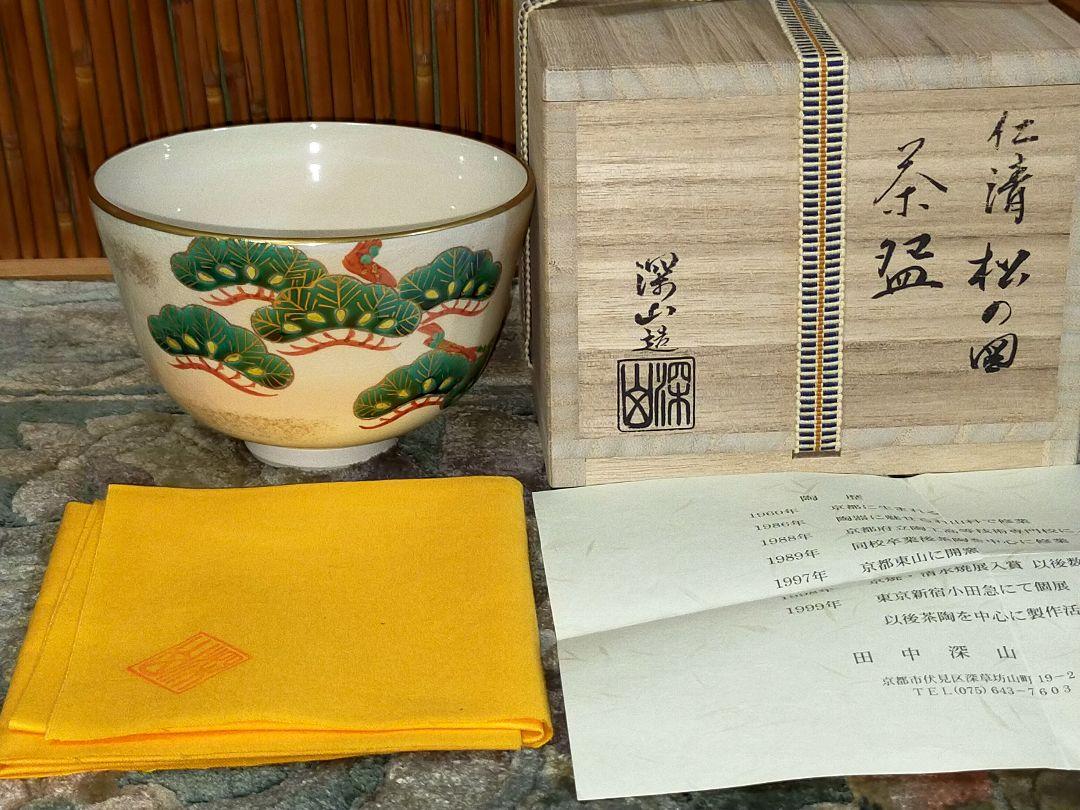 仁清 松の図
茶盌
深山造
深山
陶歴
1960年 京都に生まれる
1986年 陶器に魅せられ山科で修業
1988年 京都府立陶工高等技術専門校に
1989年 同校卒業後茶陶を中心に修業
京都東山に開窯
1997年 京焼・清水焼展入賞 以後数
1998年 東京新宿小田急にて個展
1999年 以後茶陶を中心に製作活
田中深山
京都市伏見区深草坊山町 19−2
TEL(075) 643−7603